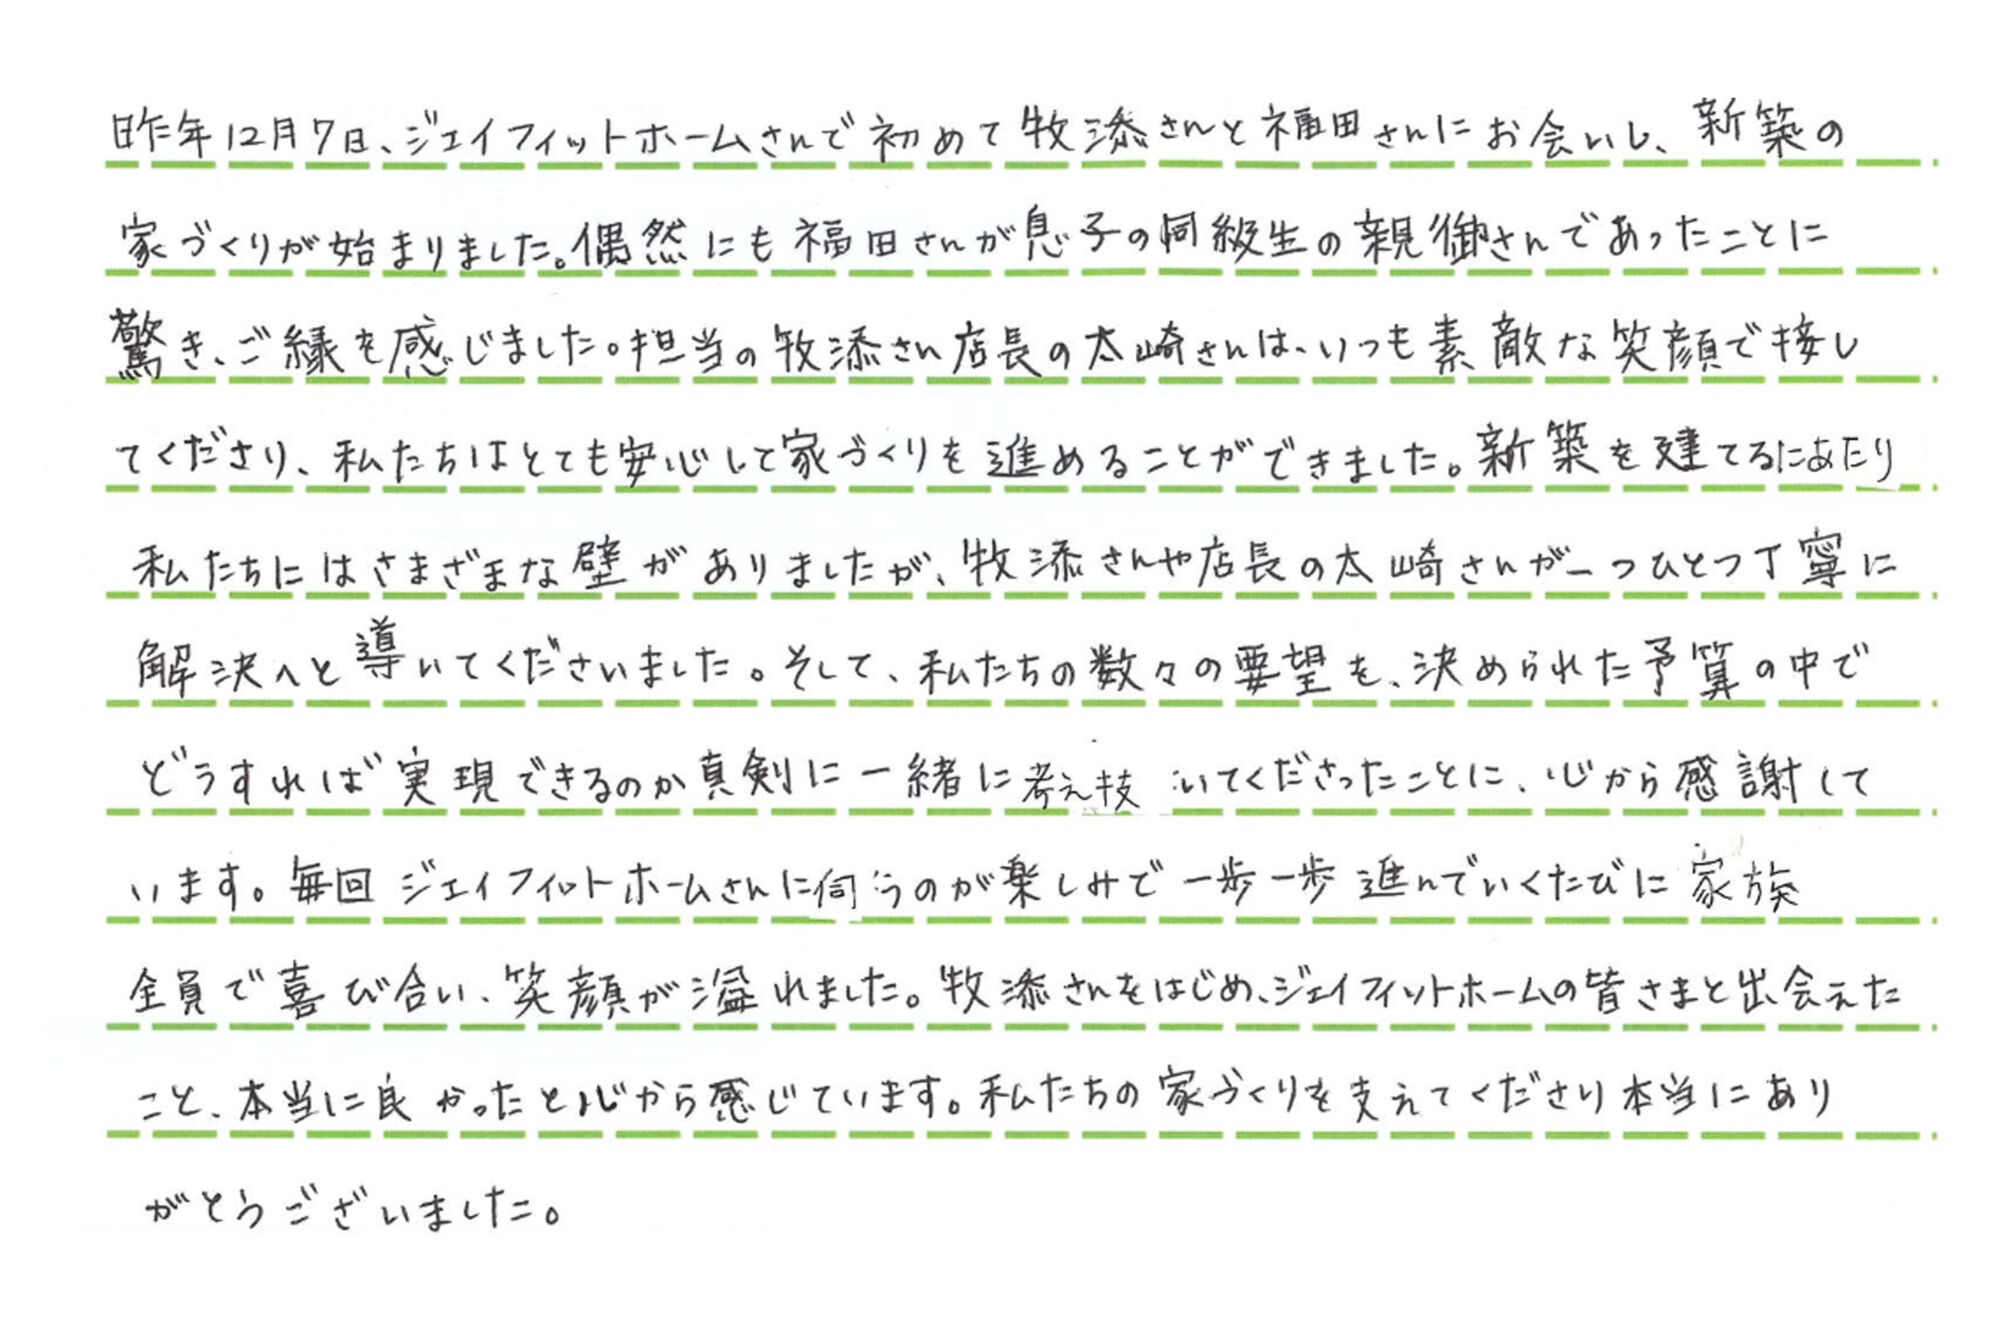 昨年12月7日、ジェイフィットホームさんで初めて牧添さんと福田さんにお会いし、新築の
家づくりが始まりました。偶然にも福田さんが息子の同級生の親御さんであったことに
驚き、ご縁を感じました。担当の牧添さん店長の太崎さんは、いつも素敵な笑顔で接し
てくださり、私たちはとても安心して家づくりを進めることができました。新築を建てるにあたり
私たちにはさまざまな壁がありましたが、牧添さんや店長の太崎さんが一つひとつ丁寧に
解決へと導いてくださいました。そして、私たちの数々の要望を、決められた予算の中で
どうすれば実現できるのか真剣に一緒に考え技いてくださったことに、心から感謝して
います。毎回ジェイフィットホームさんに伺うのが楽しみで一歩一歩進んでいくたびに家族
全員で喜び合い、笑顔が溢れました。牧添さんをはじめ、ジェイフィットホームの皆さまと出会えた
こと、本当に良かったと心から感じています。私たちの家づくりを支えてくださり本当にあり
がとうございました。